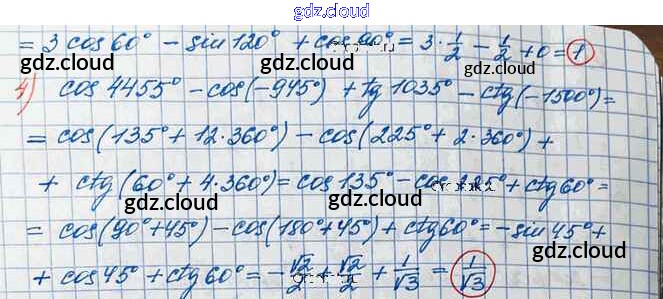 gdz.cloud
= 3 cos 60° - sin 120° + cos 90° = 3·1/2 - 1/2 + 0 = 1
gdz.cloud gdz.cloud gdz.cloud
4) cos 4455° - cos(-945°) + tg 1035° - ctg(-1500°) =
= cos(135° + 12·360°) - cos(225° + 2·360°) +
gdz.cloud gdz.cloud gdz.cloud
+ ctg(60° + 4·360°) = cos 135° - cos 225° + ctg 60° =
= cos(90° + 45°) - cos(180° + 45°) + ctg 60° = - sin 45° +
gdz.cloud gdz.cloud gdz.cloud
+ cos 45° + ctg 60° = - √2/2 + √2/2 + 1/√3 = 1/√3